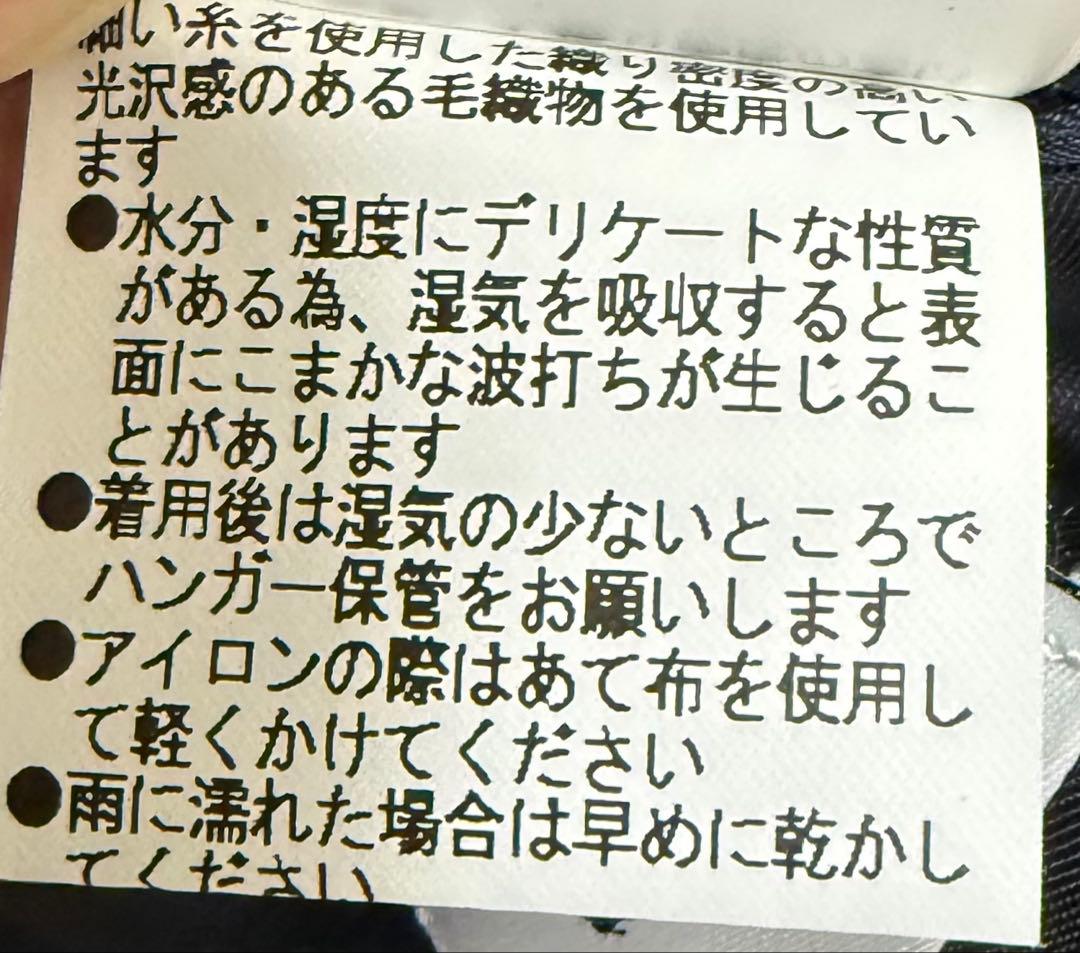 細い糸を使用した織り密度の高い
光沢感のある毛織物を使用してい
ます
●水分・湿度にデリケートな性質
がある為、湿気を吸収すると表
面にこまかな波打ちが生じるこ
とがあります
●着用後は湿気の少ないところで
ハンガー保管をお願いします
●アイロンの際はあて布を使用し
て軽くかけてください
●雨に濡れた場合は早めに乾かし
てください